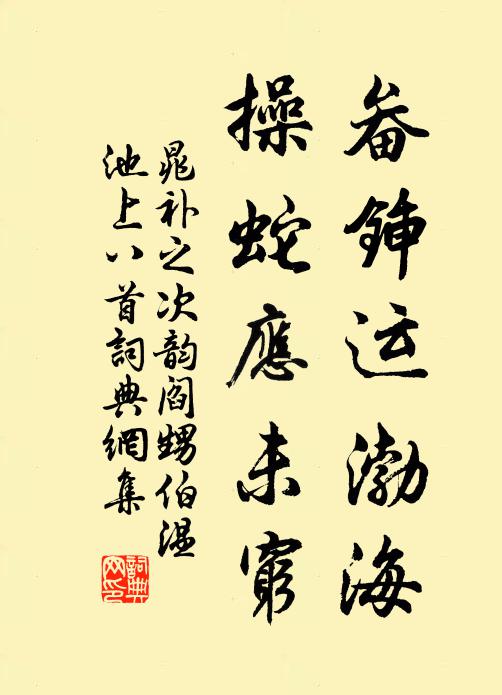 畚鍤运渤海
操蛇應未窮
晁补之次韵阎甥伯温
池上八首詞典網集
詞典
网印